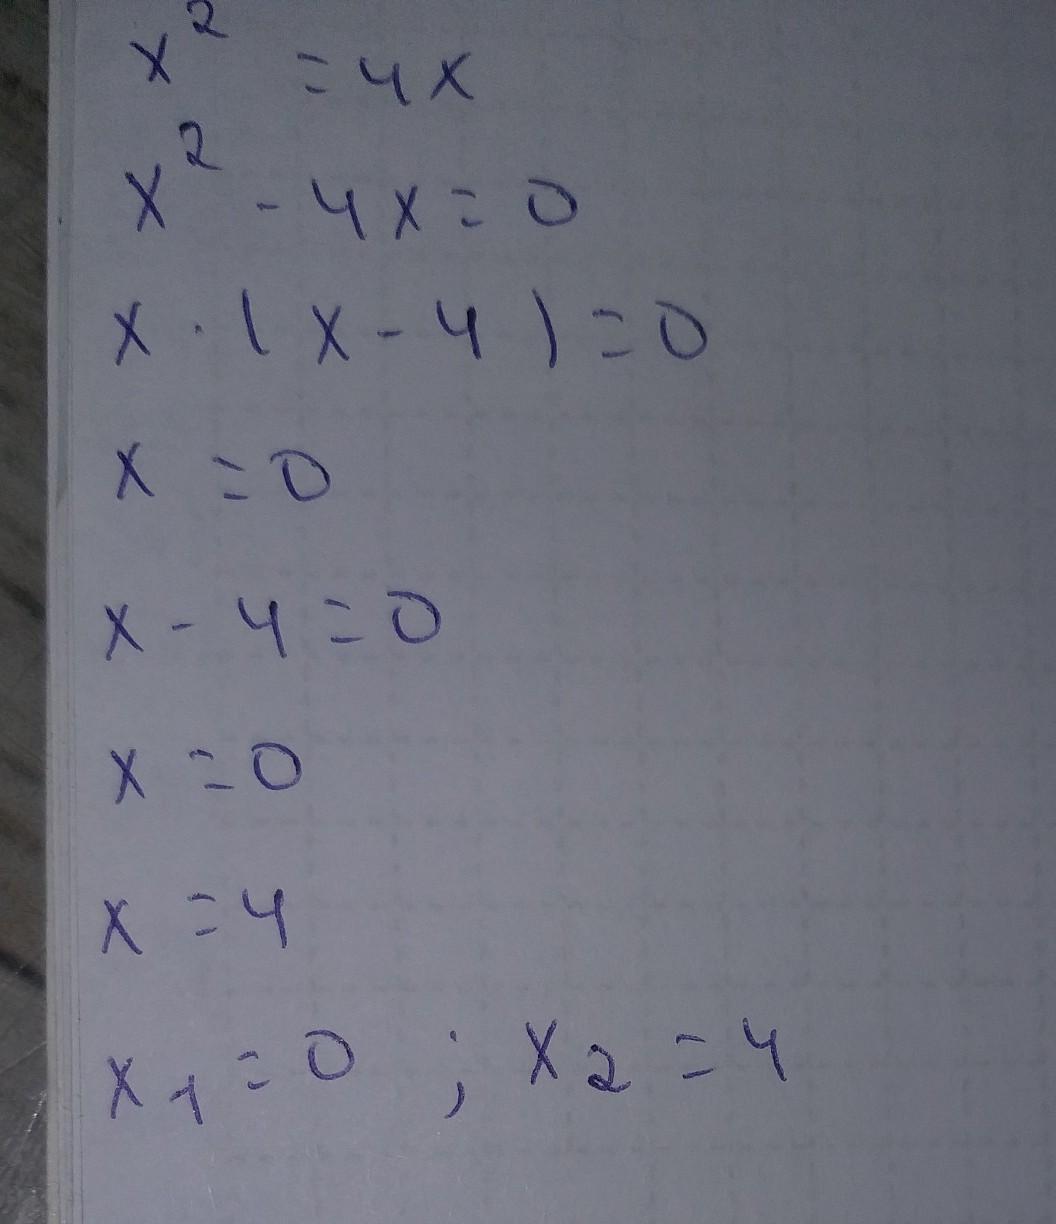 x² = 4x
x² - 4x = 0
x · (x - 4) = 0
x = 0
x - 4 = 0
x = 0
x = 4
x₁ = 0 ; x₂ = 4